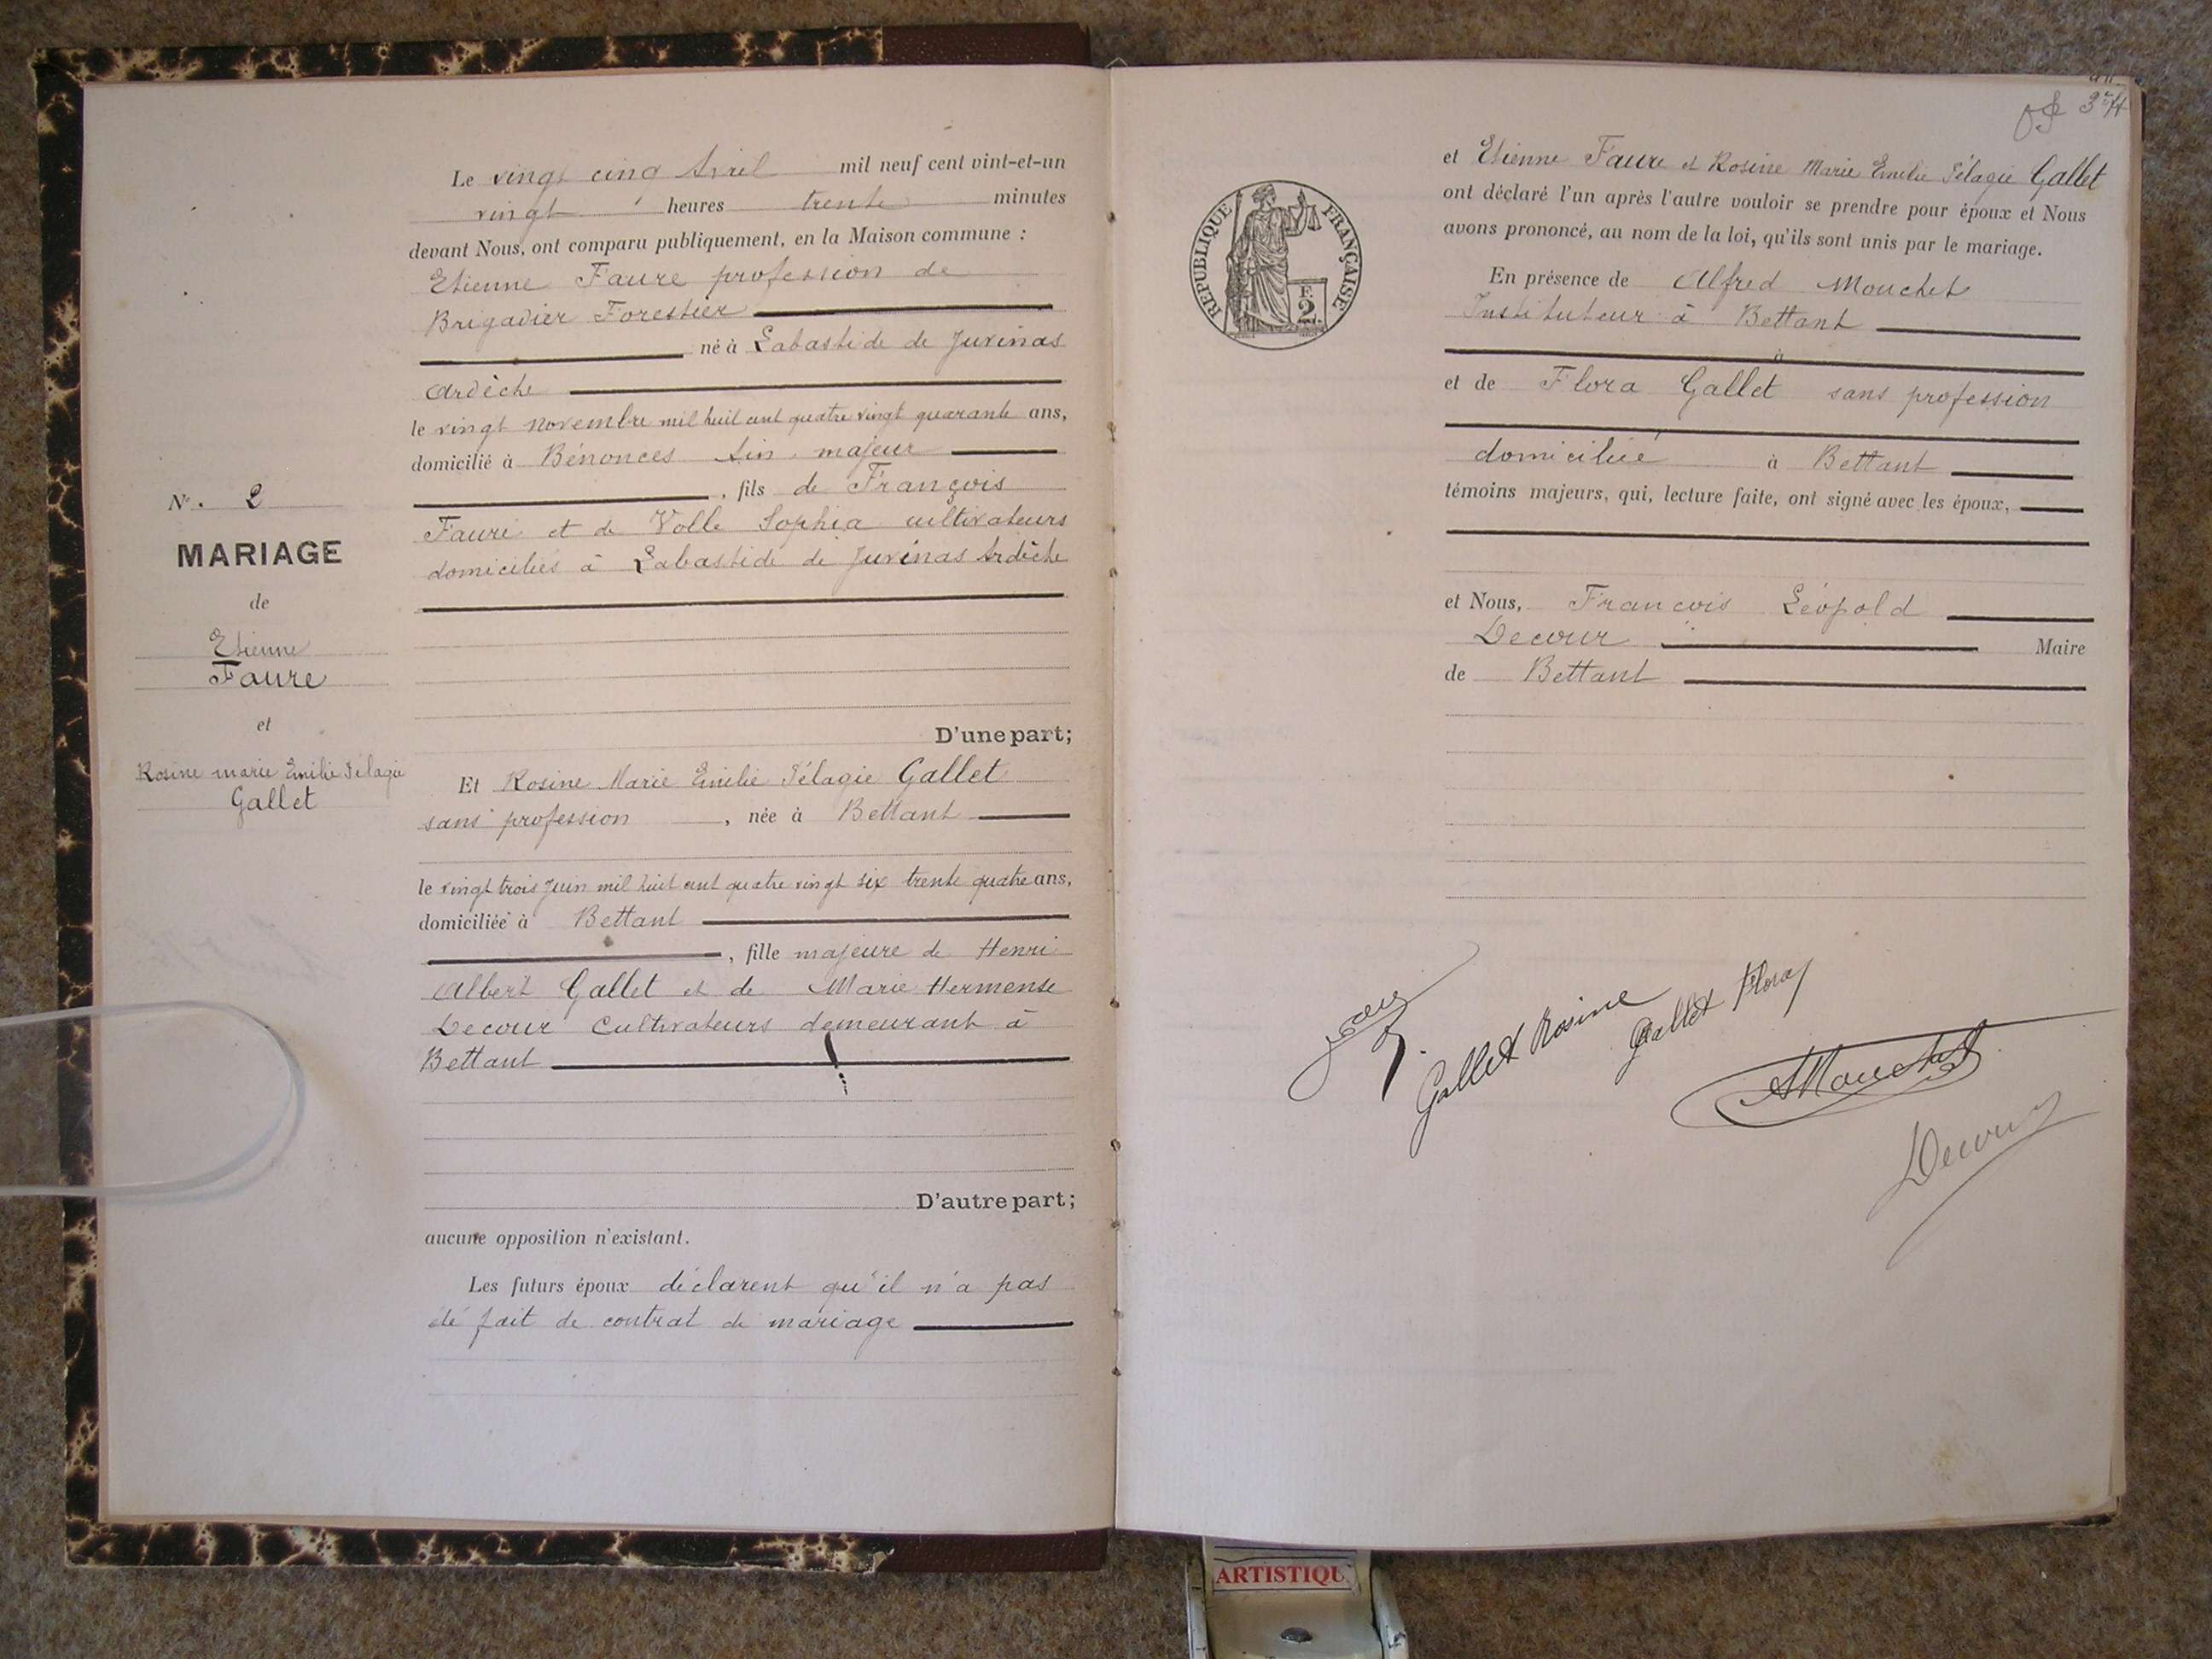 Le vingt cinq Avril mil neuf cent vint-et-un
vingt heures trente minutes
devant Nous, ont comparu publiquement, en la Maison commune :
Etienne Faure profession de
Brigadier Forestier
né à Labastide de Juvinas
Ardèche
le vingt novembre mil huit cent quatre vingt quarante ans,
domicilié à Bénonces Ain majeur
, fils de François
Faure et de Volle Sophia cultivateurs
domiciliés à Labastide de Juvinas Ardèche
D'une part;
N°. 2
MARIAGE
de
Etienne
Faure
et
Rosine marie Emilie Pélagie
Gallet
Et Rosine Marie Emilie Pélagie Gallet
sans profession , née à Bettant
le vingt trois Juin mil huit cent quatre vingt six trente quatre ans,
domiciliée à Bettant
, fille majeure de Henri
Albert Gallet et de Marie Hermense
Decour Cultivateurs demeurant à
Bettant
D'autre part;
aucune opposition n'existant.
Les futurs époux déclarent qu'il n'a pas
été fait de contrat de mariage
REPUBLIQUE FRANÇAISE
F.
2
et Etienne Faure et Rosine Marie Emilie Pélagie Gallet
ont déclaré l'un après l'autre vouloir se prendre pour époux et Nous
avons prononcé, au nom de la loi, qu'ils sont unis par le mariage.
En présence de Alfred Mouchet
Instituteur à Bettant
à
et de Flora Gallet sans profession
domiciliée à Bettant
témoins majeurs, qui, lecture faite, ont signé avec les époux,
et Nous, François Léopold
Decour Maire
de Bettant
Gallet Rosine
Gallet Flora
AMouchet
Decour
ARTISTIQU